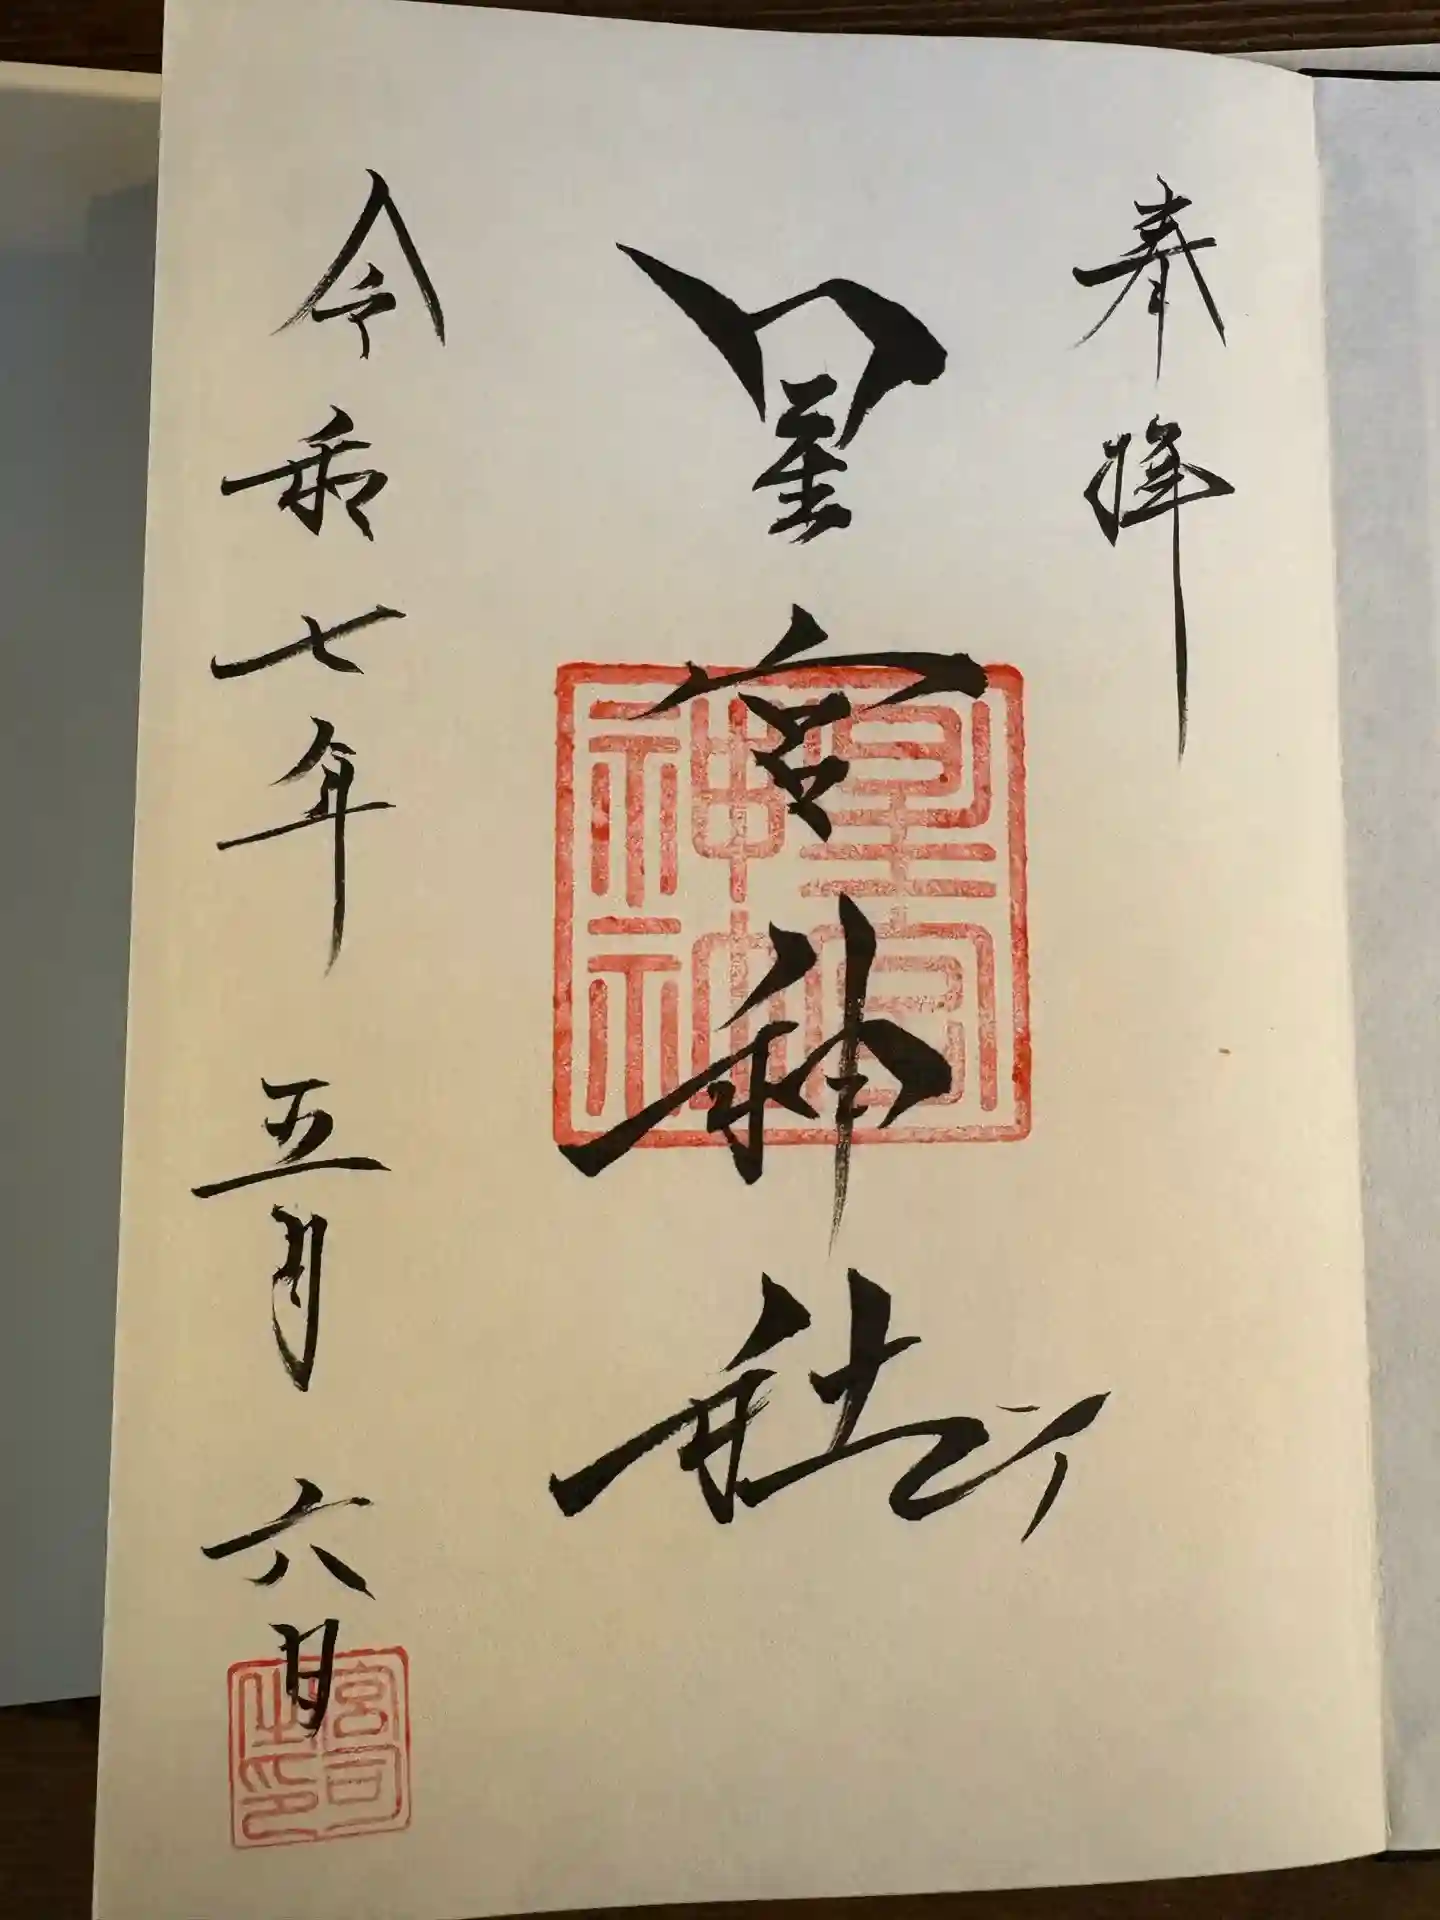 奉拝
星宮神社
令和七年 五月 六日
宮司之印